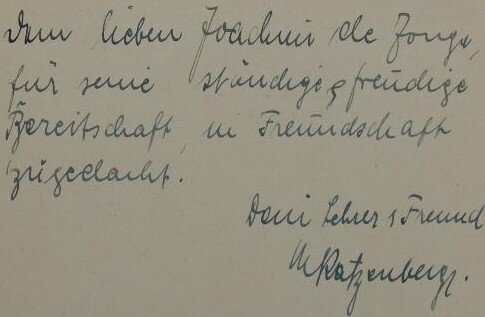 Dem lieben Joachim de Jonge,
für seine ständige, freudige
Bereitschaft, in Freundschaft
zugedacht.
Dein Lehrer & Freund
M Katzenberg.